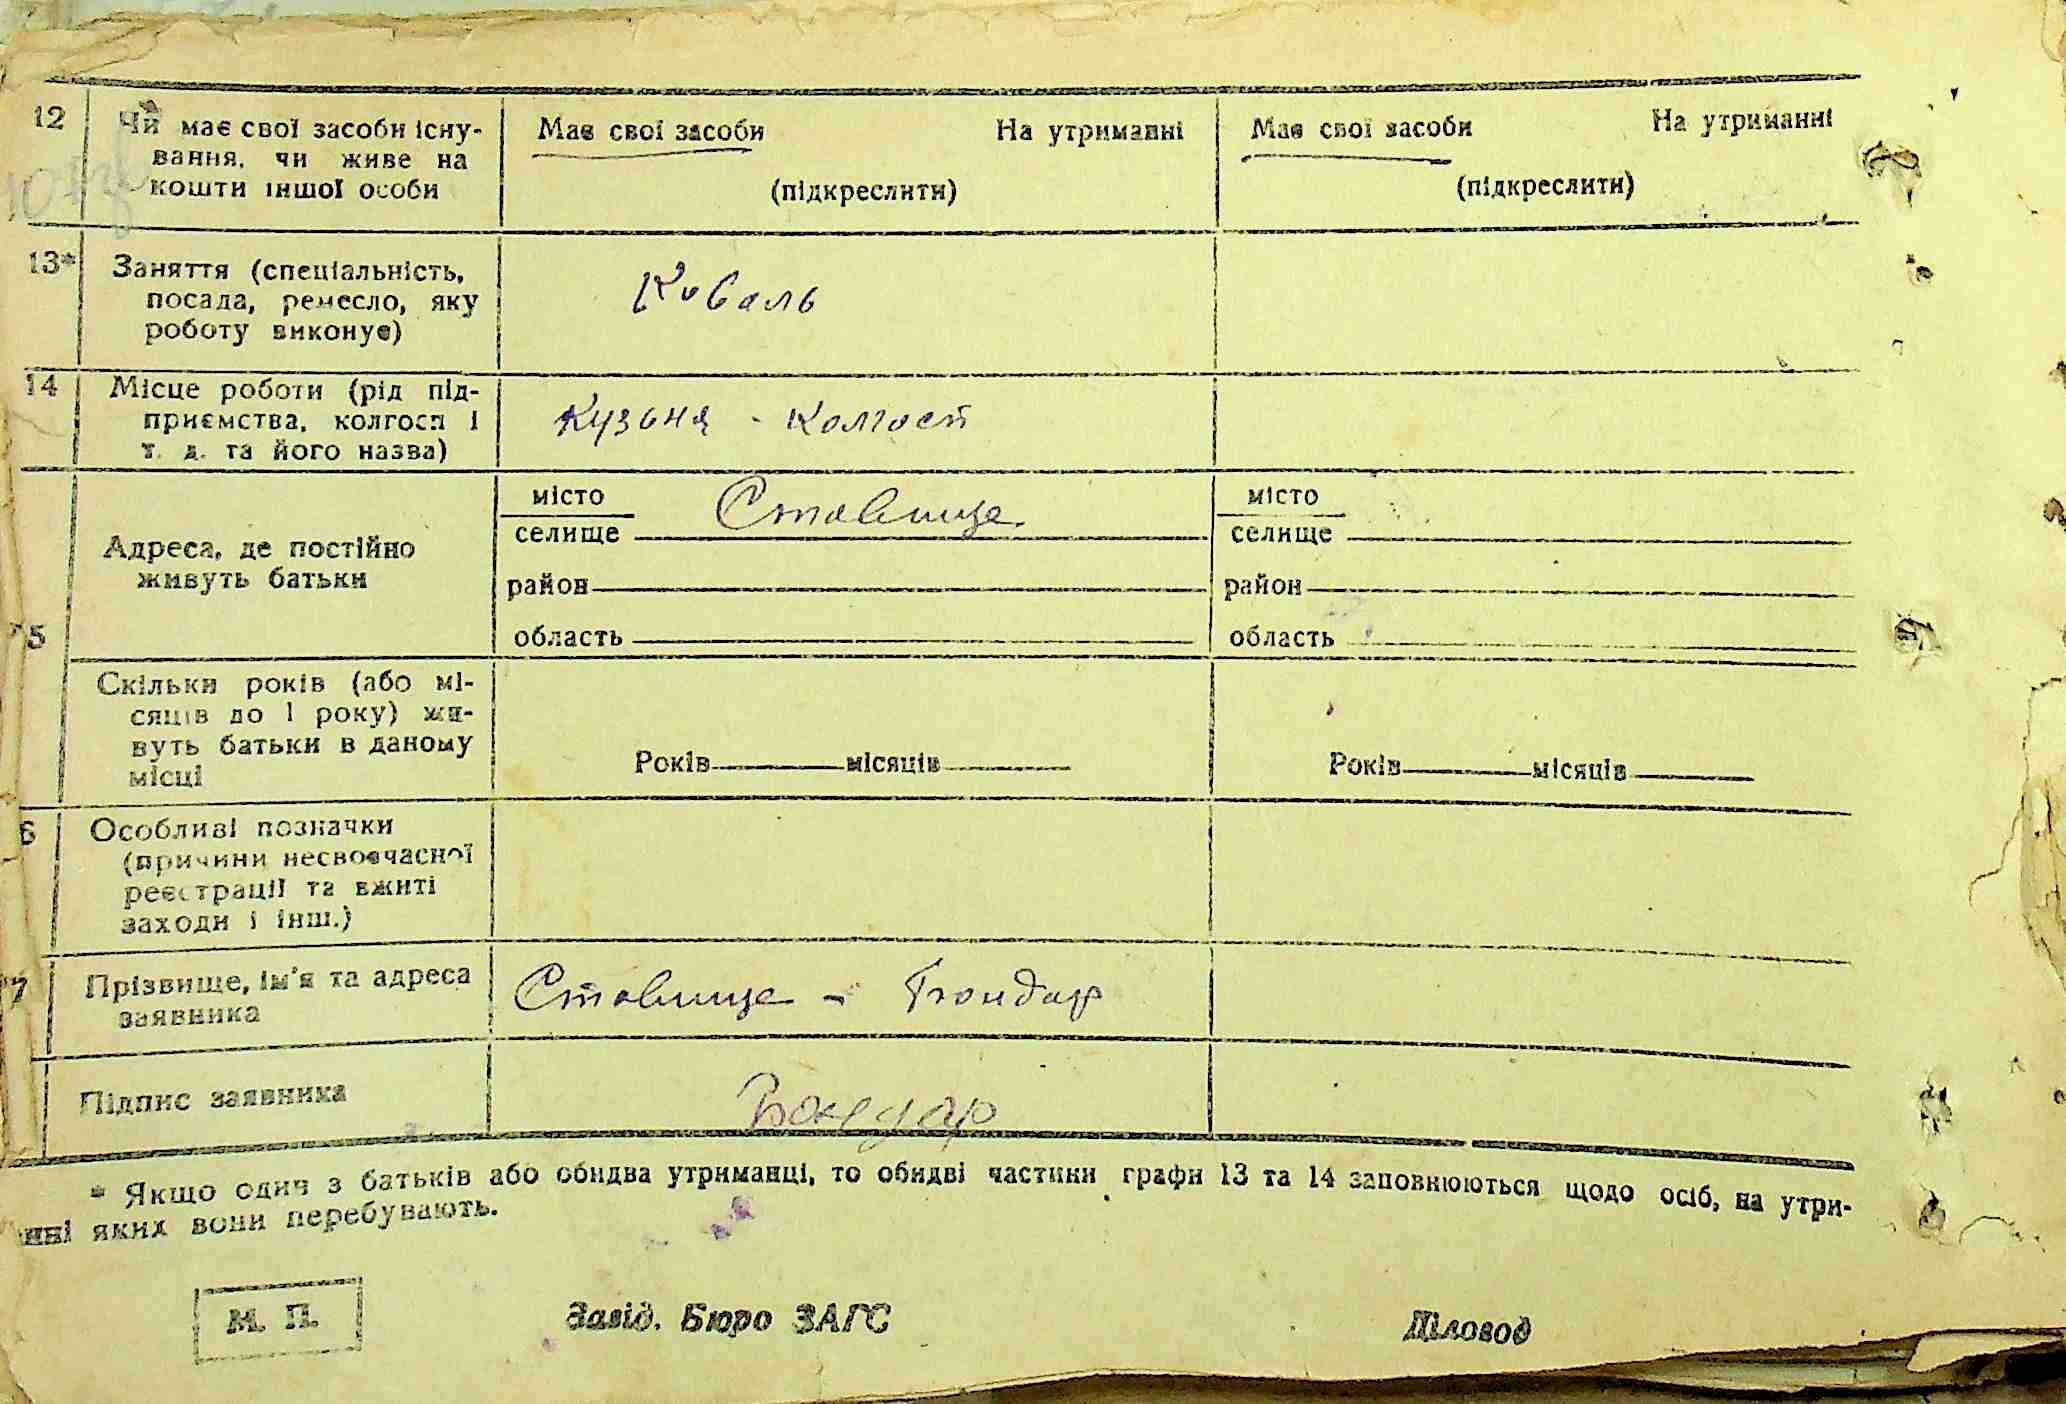 12 Чи має свої засоби існу- Має свої засоби На утриманні Має свої засоби На утриманні
вання, чи живе на
кошти іншої особи (підкреслити) (підкреслити)
13* Заняття (спеціальність,
посада, ремесло, яку Коваль
роботу виконує)
14 Місце роботи (рід під-
приємства, колгосп і Кузьня - Колгосп
т. д. та його назва)
місто Ставище місто
Адреса, де постійно селище селище
живуть батьки район район
5 область область
Скільки років (або мі-
сяців до 1 року) жи-
вуть батьки в даному Років місяців Років місяців
місці
6 Особливі позначки
(причини несвоєчасної
реєстрації та вжиті
заходи і інш.)
7 Прізвище, ім'я та адреса Ставище - Бондар
заявника
Підпис заявника Бондар
* Якщо один з батьків або обидва утриманці, то обидві частини графи 13 та 14 заповнюються щодо осіб, на утри-
нні яких вони перебувають.
М. П. Завід. Бюро ЗАГС Діловод